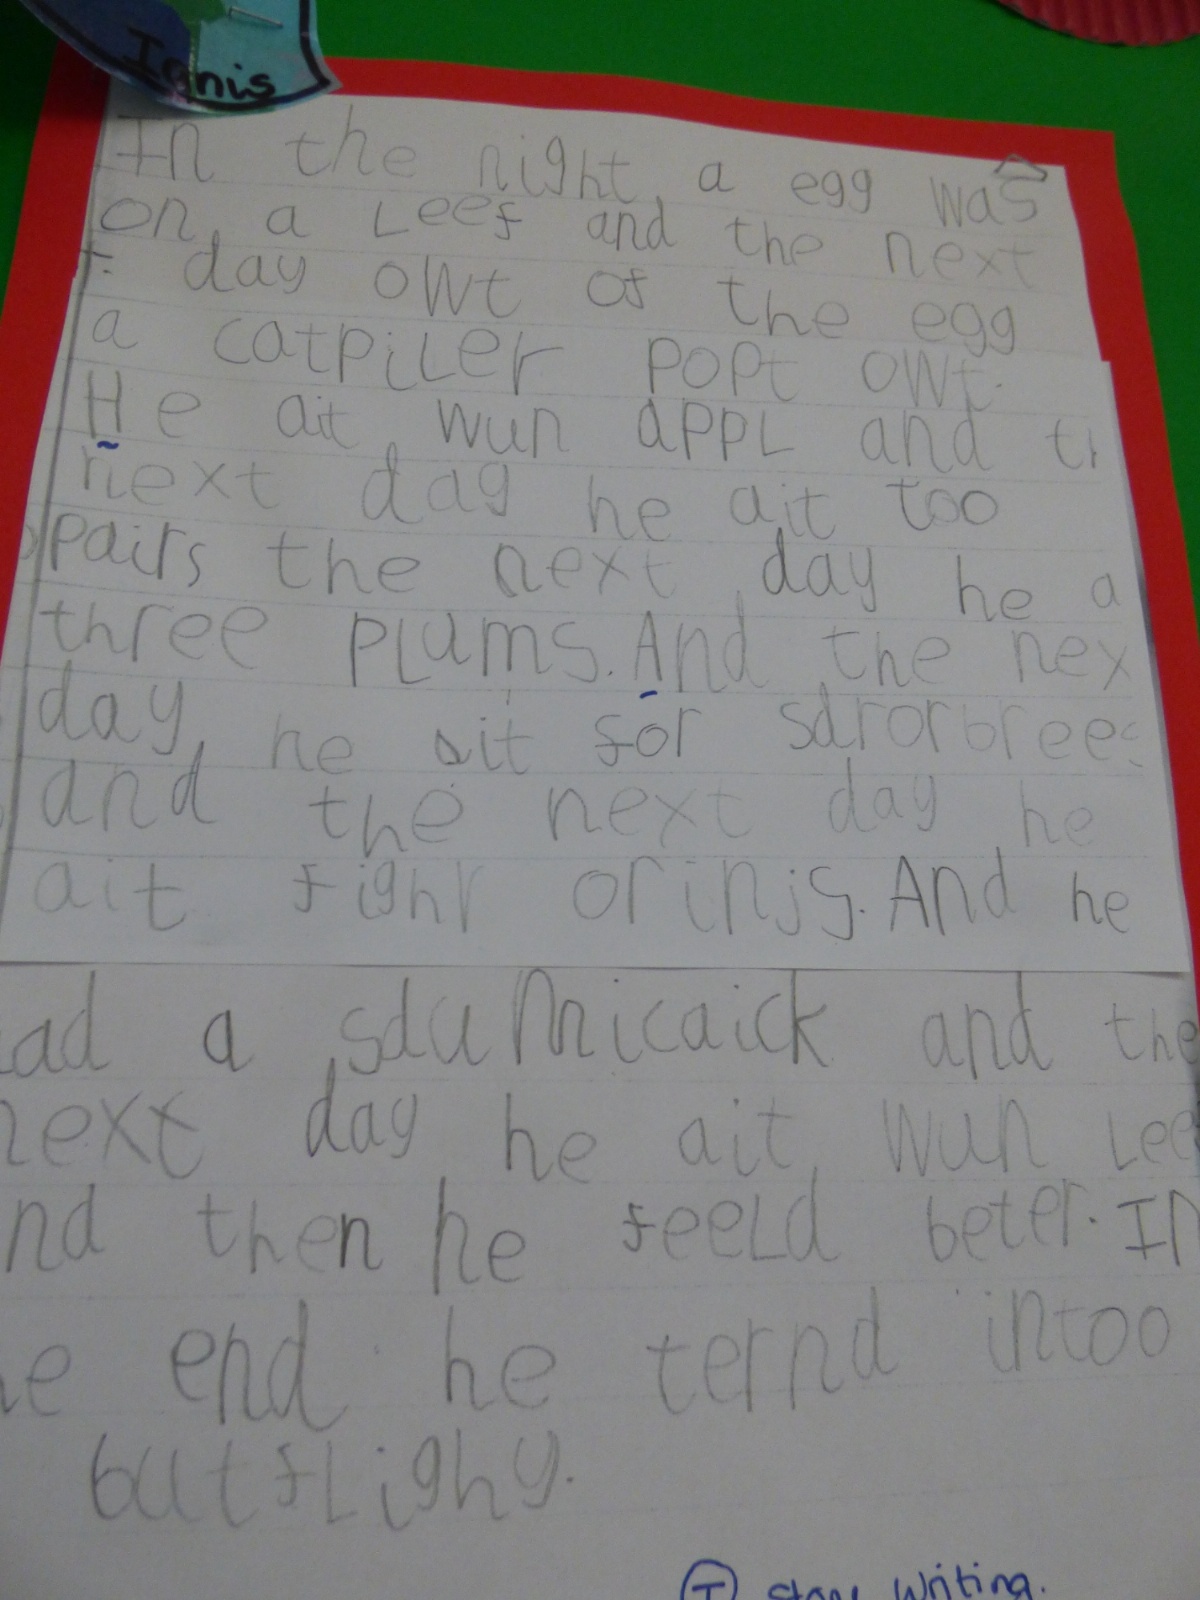 Ignis
In the night a egg was
on a Leef and the next
day owt of the egg
a catpiLer popt owt.
He ait wun appL and
next day he ait too
pairs the next day he a
three pLums. And the nex
day he ait for sdrorbrees
and the next day he
ait fighv orinjs. And he
ad a sdumicaick and the
next day he ait wun Lee
nd then he feeLd beter. In
he end he ternd intoo
butfLighy.
T Story Writing.